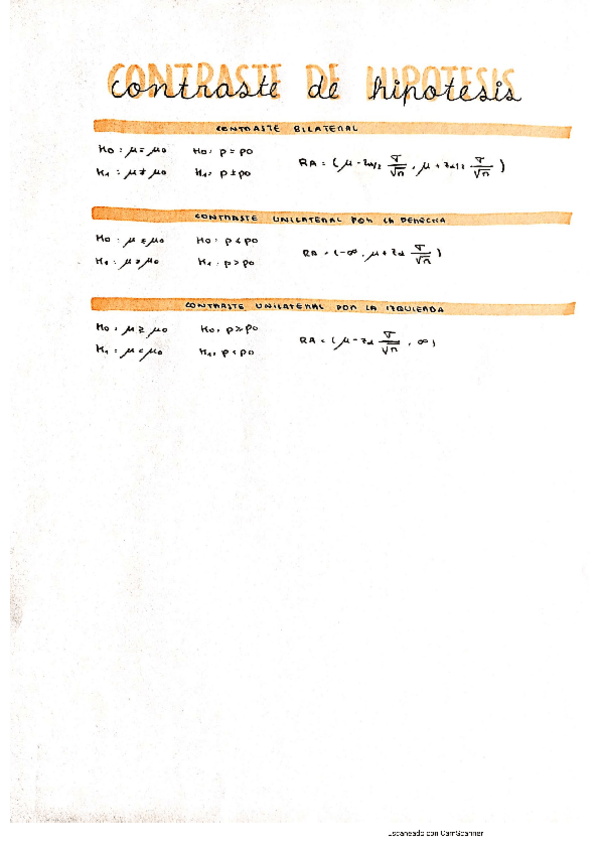 CONTRASTE DE HIPOTESIS
contraste de hipotesis
CONTRASTE BILATERAL
H0 : μ = μ0 H0 : p = p0
H1 : μ ≠ μ0 H1 : p ≠ p0 RA = ( μ - zα/2 σ/√n , μ + zα/2 σ/√n )
CONTRASTE UNILATERAL POR LA DERECHA
H0 : μ ≤ μ0 H0 : p ≤ p0
H1 : μ > μ0 H1 : p > p0 RA = (-∞ , μ + zα σ/√n )
CONTRASTE UNILATERAL POR LA IZQUIERDA
H0 : μ ≥ μ0 H0 : p ≥ p0
H1 : μ < μ0 H1 : p < p0 RA = ( μ - zα σ/√n , ∞)
Escaneado con CamScanner